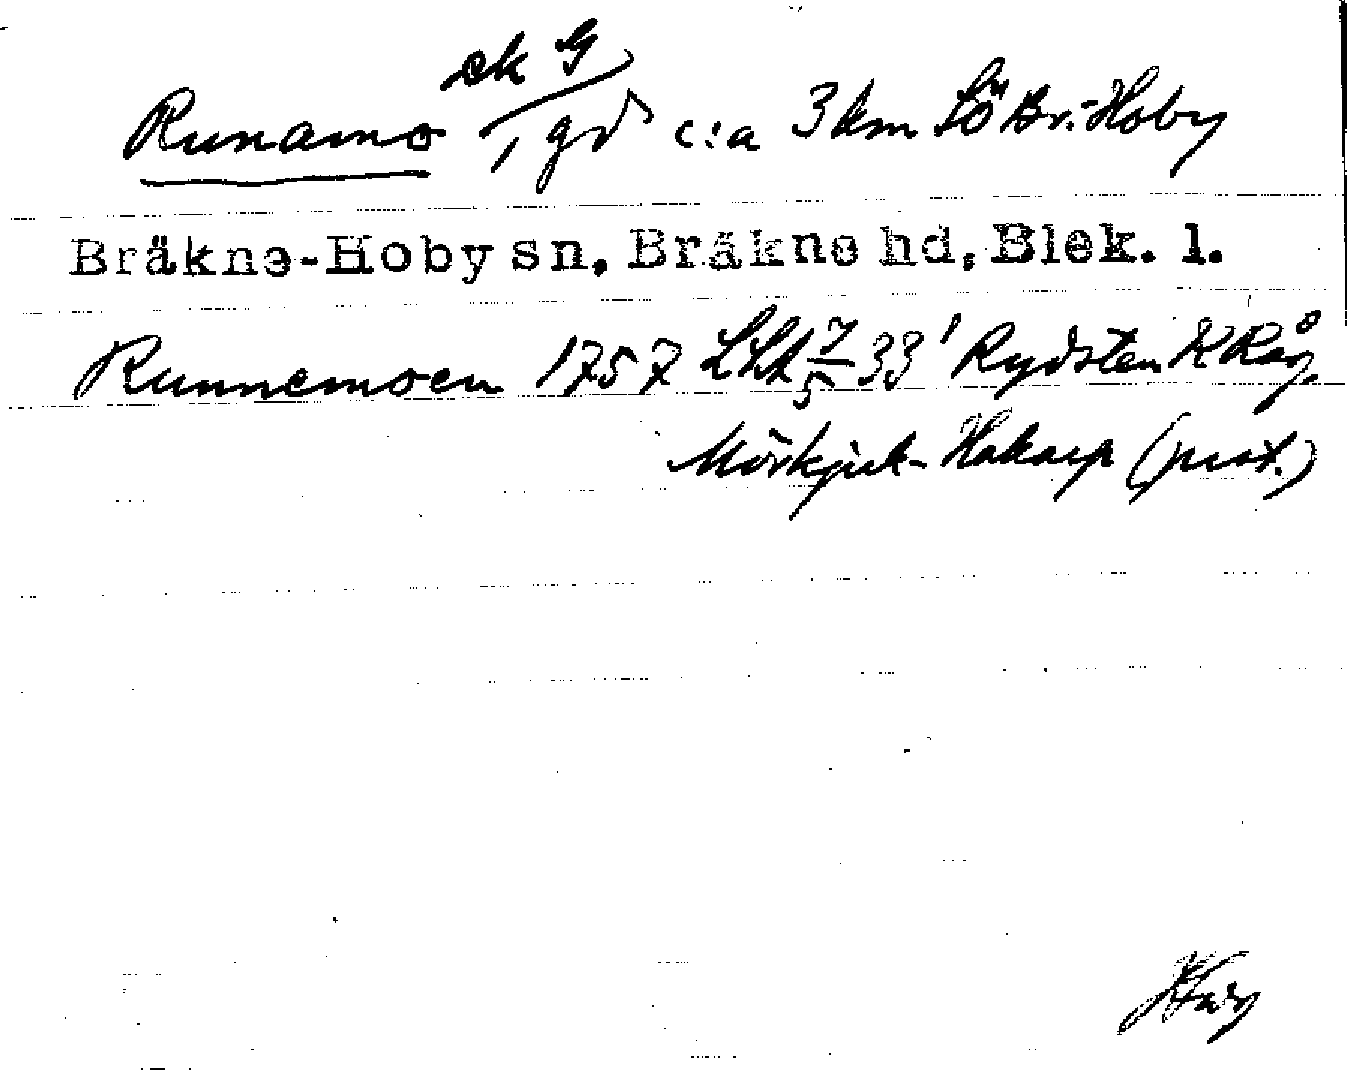 ek G
Runamo / gd c:a 3 km SÖ Br.-Hoby
Bräkne-Hoby sn, Bräkne hd, Blek. l.
Runnemoen 1757 7/5 33' Rydsten K Råg,
Mörkjuk- Hakarp (prot.)